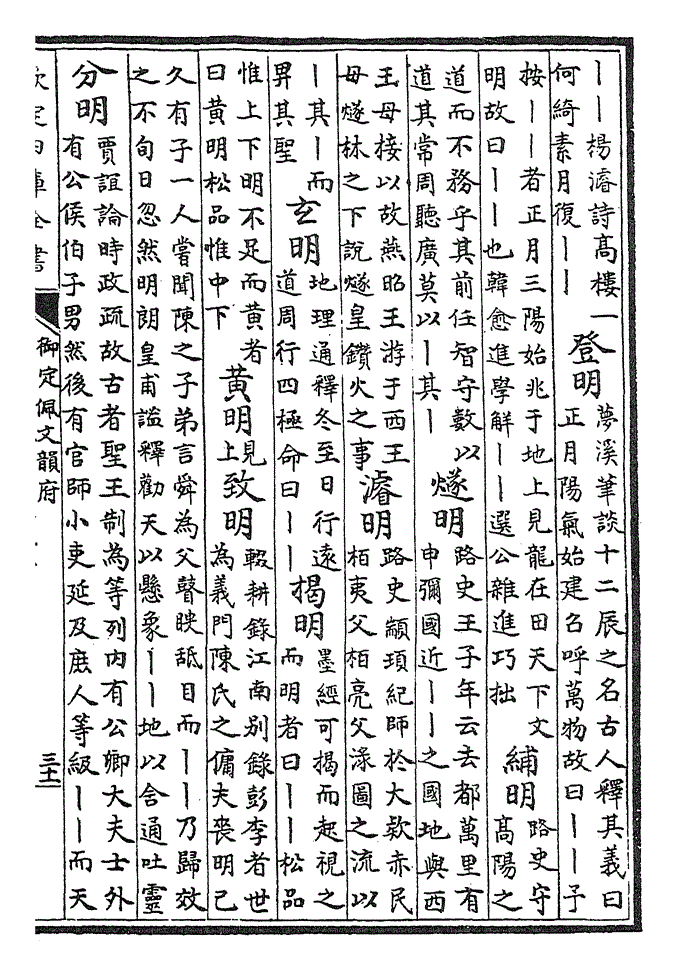 丨丨楊濬詩高樓一
何綺素月復丨丨
登明
夢溪筆談十二辰之名古人釋其義曰
正月陽氣始建召呼萬物故曰丨丨子
按丨丨者正月三陽始兆于地上見龍在田天下文
明故曰丨丨也韓愈進學解丨丨選公雜進巧拙
䋠明
路史守
高陽之
道而不務乎其前任智守數以
道其常周聽廣莫以丨其丨
燧明
路史王子年云去都萬里有
申彌國近丨丨之國地與西
王母接以故燕昭王游于西王
母燧林之下說燧皇鑽火之事
濬明
路史顓頊紀師於大款赤民
柏夷父柏亮父淥圖之流以
丨其丨而
畀其聖
玄明
地理通釋冬至日行遠
道周行四極命曰丨丨
揭明
墨經可揭而起視之
而明者曰丨丨松品
惟上下明不足而黄者
曰黄明松品惟中下
黄明
見上
致明
輟耕錄江南别錄彭李者世
為義門陳氏之傭夫喪明已
久有子一人嘗聞陳之子弟言舜為父瞽映舐目而丨丨乃歸效
之不旬日忽然明朗皇甫謐釋勸天以懸象丨丨地以含通吐靈
分明
賈誼論時政疏故古者聖王制為等列内有公卿大夫士外
有公侯伯子男然後有官師小吏延及庶人等級丨丨而天
欽定四庫全書
御定佩文韻府